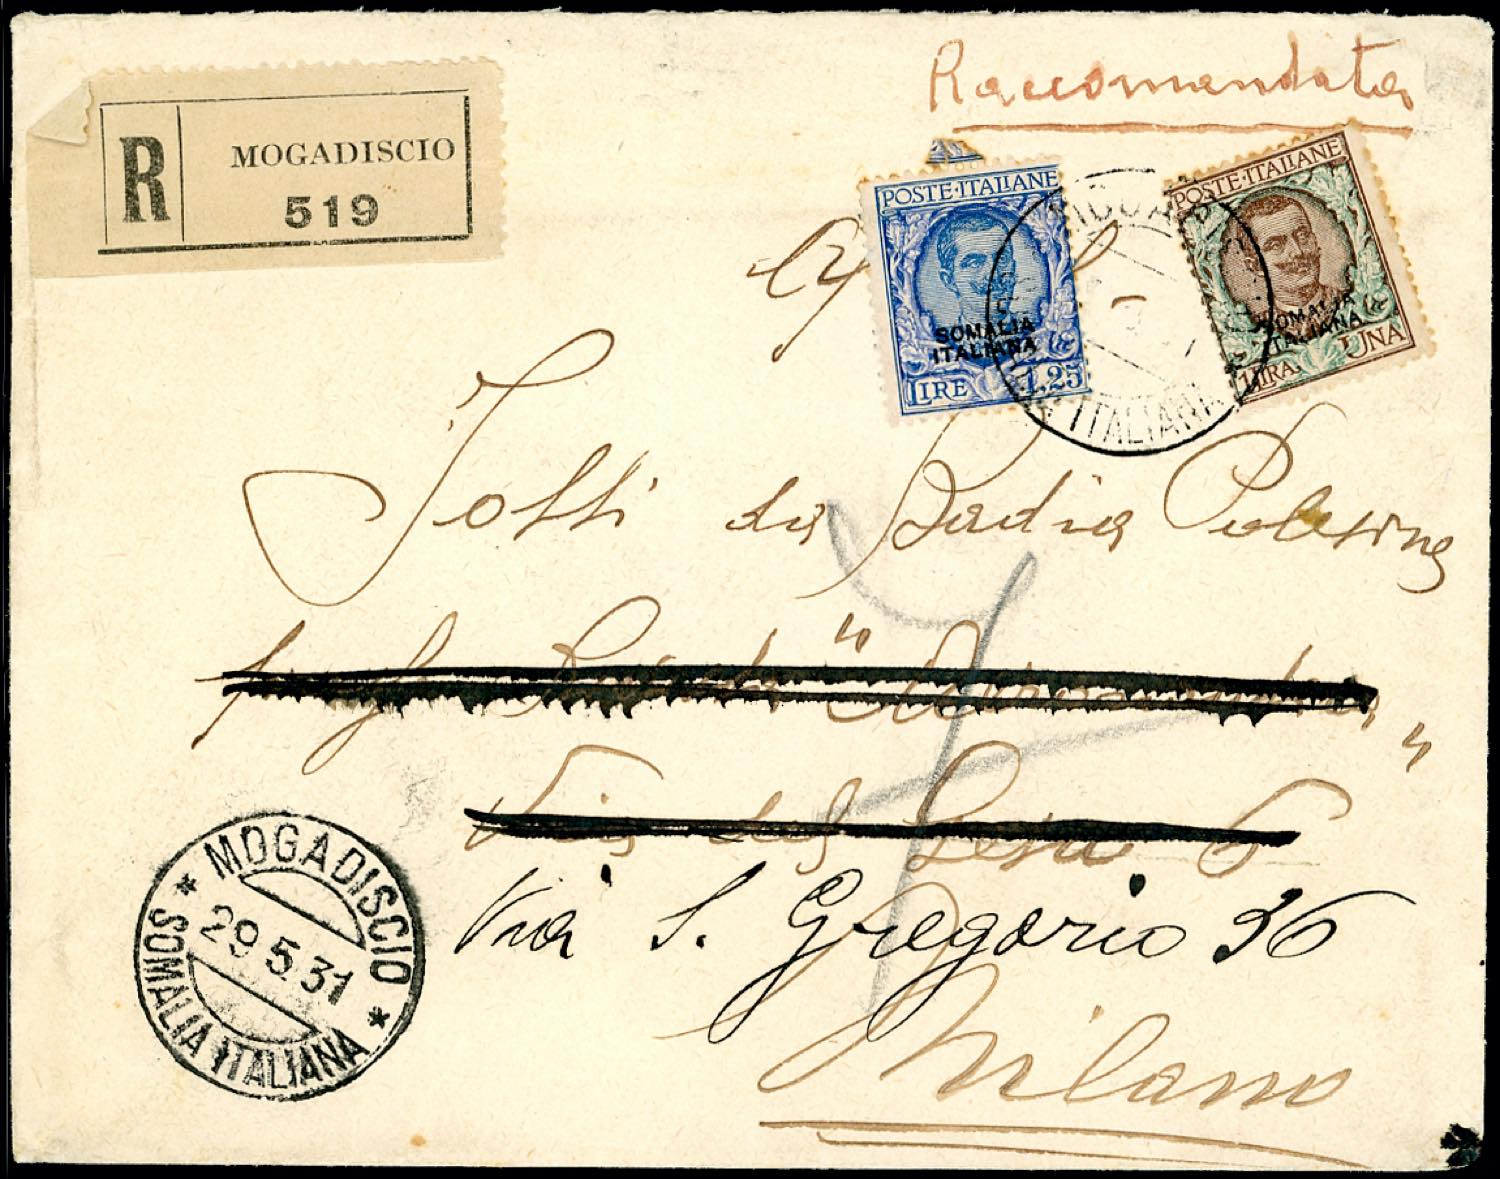 Raccomandata
R MOGADISCIO
519
POSTE·ITALIANE
SOMALIA
ITALIANA
LIRE 1.25
POSTE·ITALIANE
SOMALIA
ITALIANA
UNA
LIRA
ITALIANA
da Badia Polesine
Via del 6
Via S. Gregorio 36
Milano
MOGADISCIO
29.5.31
SOMALIA ITALIANA